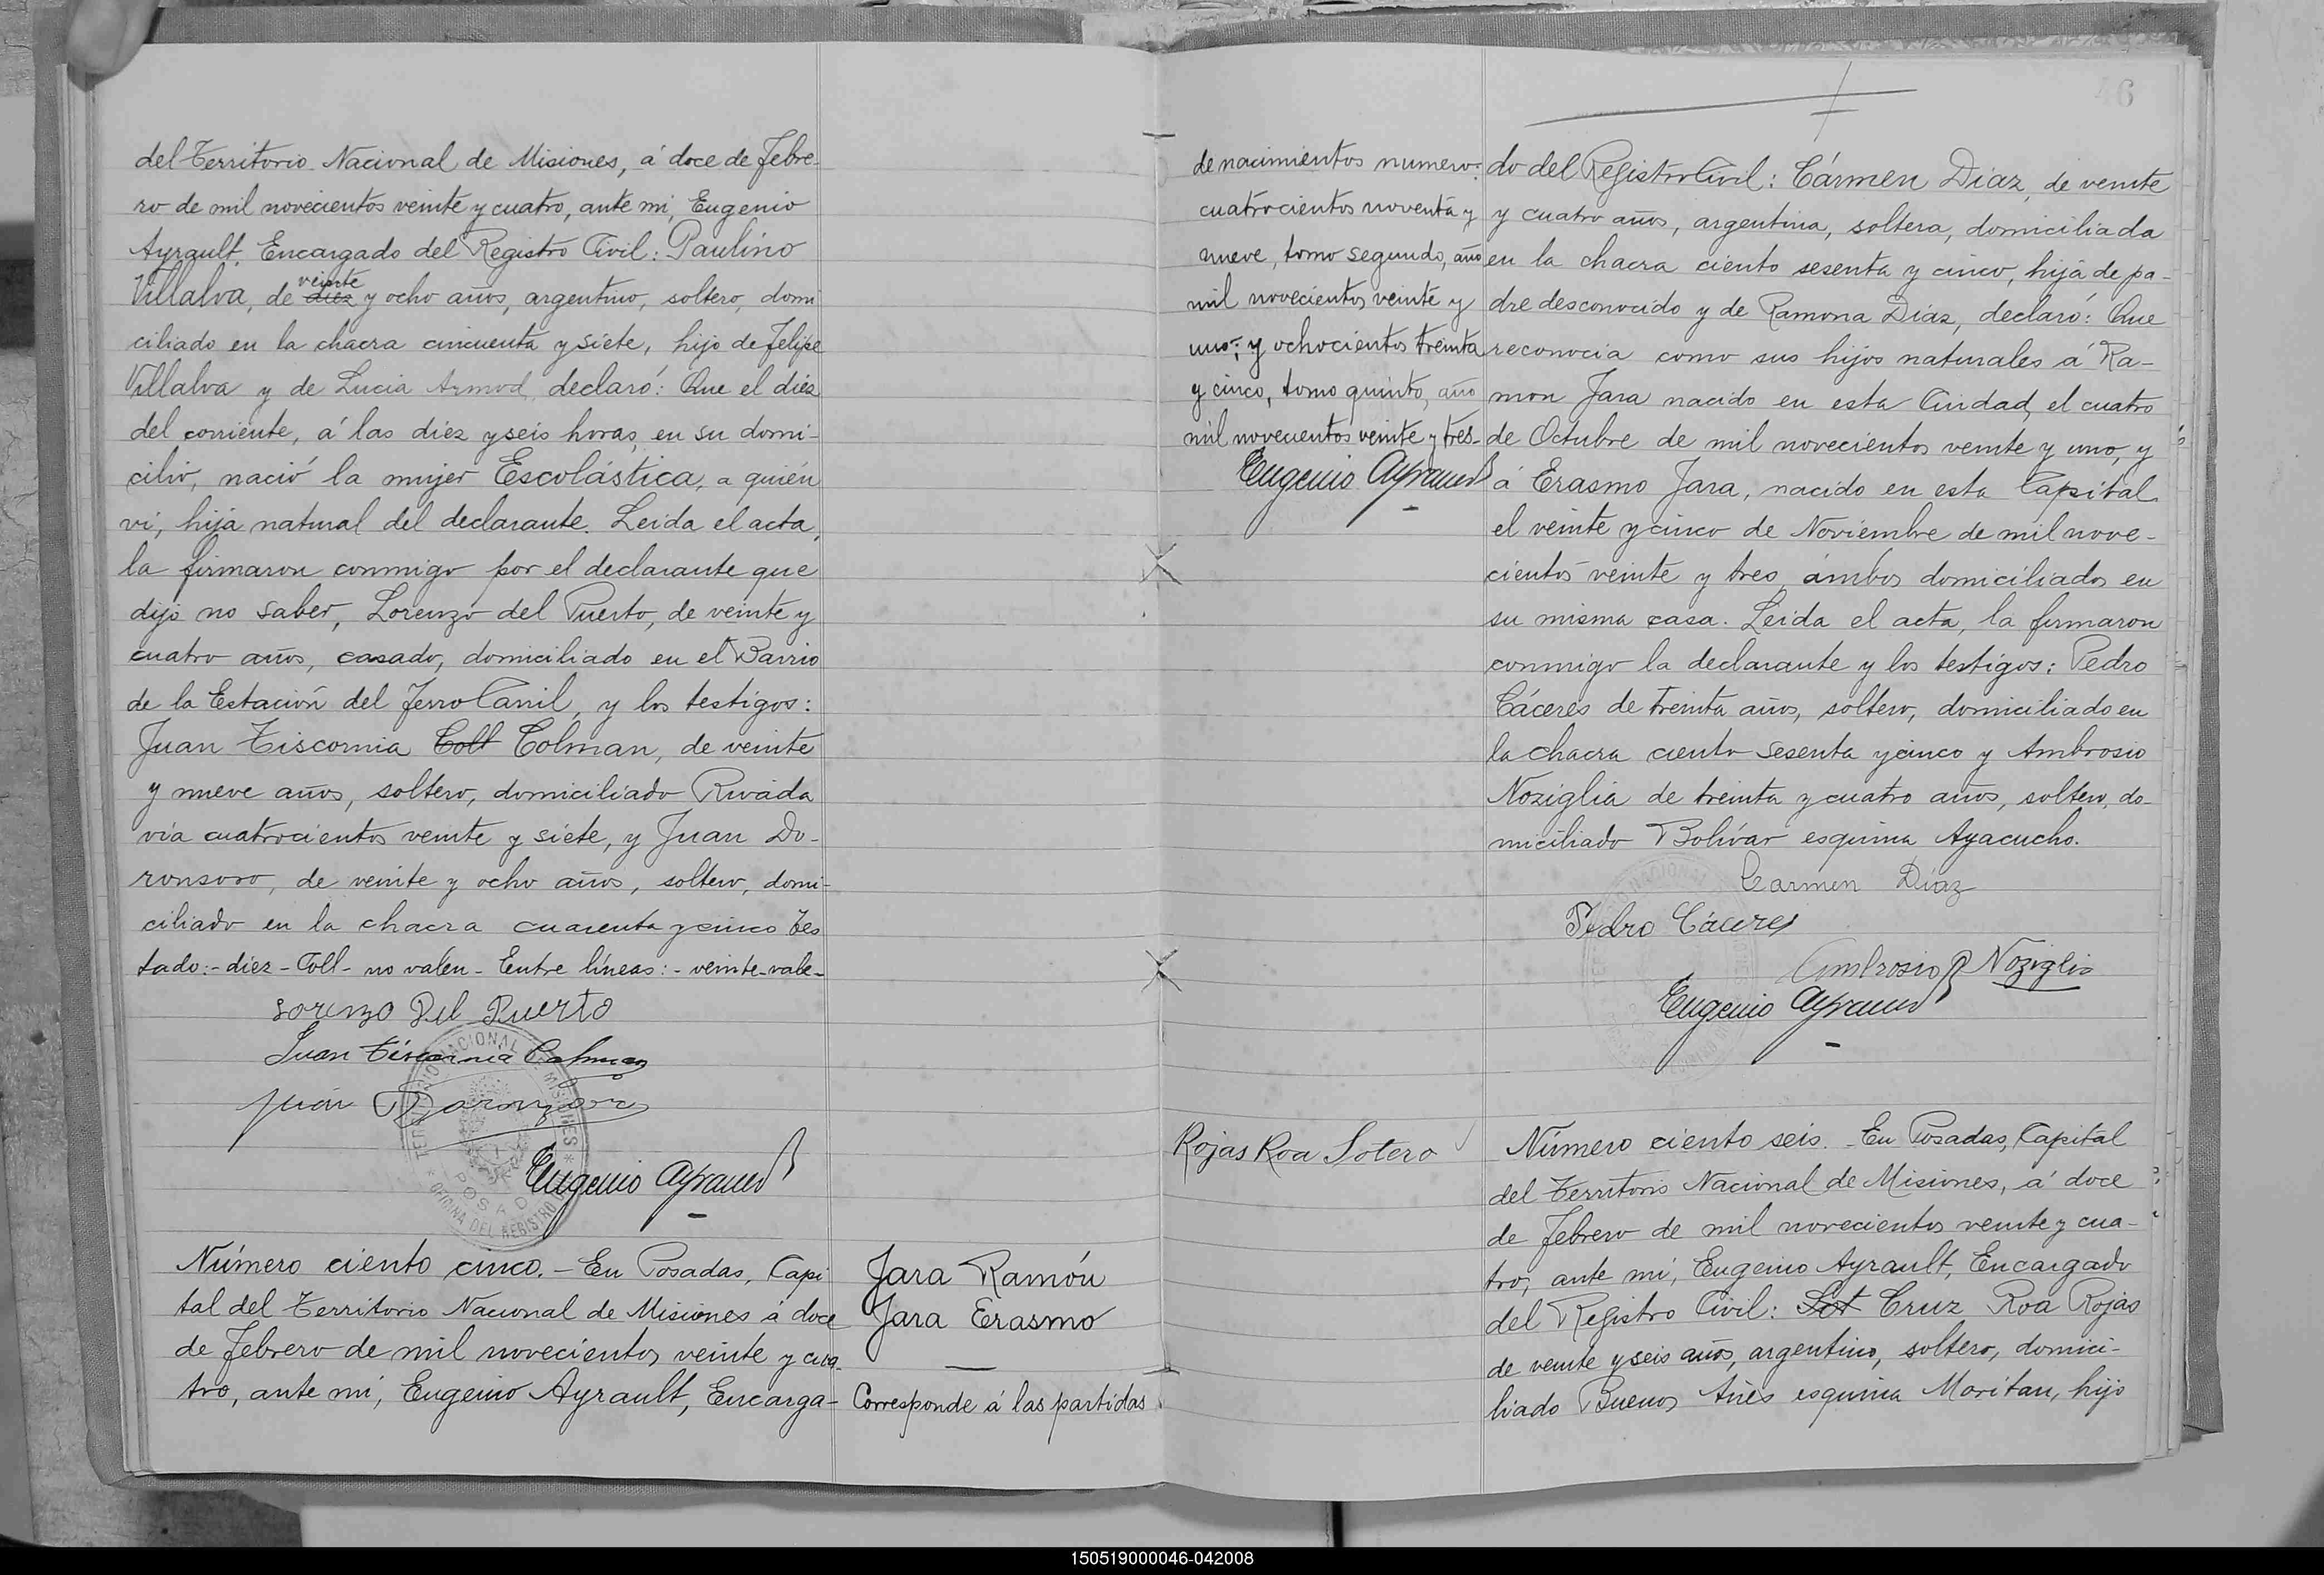 del Territorio Nacional de Misiones, á doce de Febre-
ro de mil novecientos veinte y cuatro, ante mi, Eugenio
Ayrault, Encargado del Registro Civil: Paulino
veinte
Villalva, de diez y ocho años, argentino, soltero, domi
ciliado en la chacra cincuenta y siete, hijo de Felipe
Villalva y de Lucia declaró: Que el diez
del corriente, á las diez y seis horas, en su domi-
cilio, nació la mujer Escolástica, a quién
vi, hija natural del declarante. Leida el acta,
la firmaron conmigo por el declarante que
dijo no saber, Lorenzo del Puerto, de veinte y
cuatro años, casado, domiciliado en el Barrio
de la Estación del FerroCarril, y los testigos:
Juan Tiscornia Coll Colman, de veinte
y nueve años, soltero, domiciliado Rivada
via cuatrocientos veinte y siete, y Juan Do-
ronsoro, de veinte y ocho años, soltero, domi-
ciliado en la chacra cuarenta y cinco Tes
tado:- diez - Coll - no valen - Entre líneas: - veinte - vale -
Lorenzo Del Puerto
Juan Tiscornia Colman
Juan Doronzoro
TERRITORIO NACIONAL DE MISIONES
POSADAS
OFICINA DEL REGISTRO
Eugenio Ayrault
Número ciento cinco. - En Posadas, Capi
tal del Territorio Nacional de Misiones á doce
de Febrero de mil novecientos veinte y cua-
tro, ante mi, Eugenio Ayrault, Encarga-
Jara Ramón
Jara Erasmo
Corresponde á las partidas
de nacimientos numero:
cuatrocientos noventa y
nueve, tomo segundo, año
mil novecientos veinte y
uno; y ochocientos treinta
y cinco, tomo quinto, año
mil novecientos veinte y tres-
Eugenio Ayrault
46
do del Registro Civil: Cármen Diaz, de veinte
y cuatro años, argentina, soltera, domiciliada
en la chacra ciento sesenta y cinco, hija de pa-
dre desconocido y de Ramona Diaz, declaró: Que
reconocia como sus hijos naturales á Ra-
mon Jara nacido en esta Ciudad, el cuatro
de Octubre de mil novecientos veinte y uno, y
á Erasmo Jara, nacido en esta Capital
el veinte y cinco de Noviembre de mil nove-
cientos veinte y tres, ámbos domiciliados en
su misma casa. Leida el acta, la firmaron
conmigo la declarante y los testigos: Pedro
Cáceres de treinta años, soltero, domiciliado en
la chacra ciento sesenta y cinco y Ambrosio
Noziglia de treinta y cuatro años, soltero, do-
miciliado Bolívar esquina Ayacucho.
Carmen Diaz
Pedro Cáceres
Ambrosio R Noziglia
Eugenio Ayrault
Rojas Roa Sotero
Número ciento seis. En Posadas, Capital
del Territorio Nacional de Misiones, á doce
de Febrero de mil novecientos veinte y cua-
tro, ante mi, Eugenio Ayrault, Encargado
del Registro Civil: Sot Cruz Roa Rojas
de veinte y seis años, argentino, soltero, domici-
liado Buenos Aires esquina Moritan, hijo
150519000046-042008